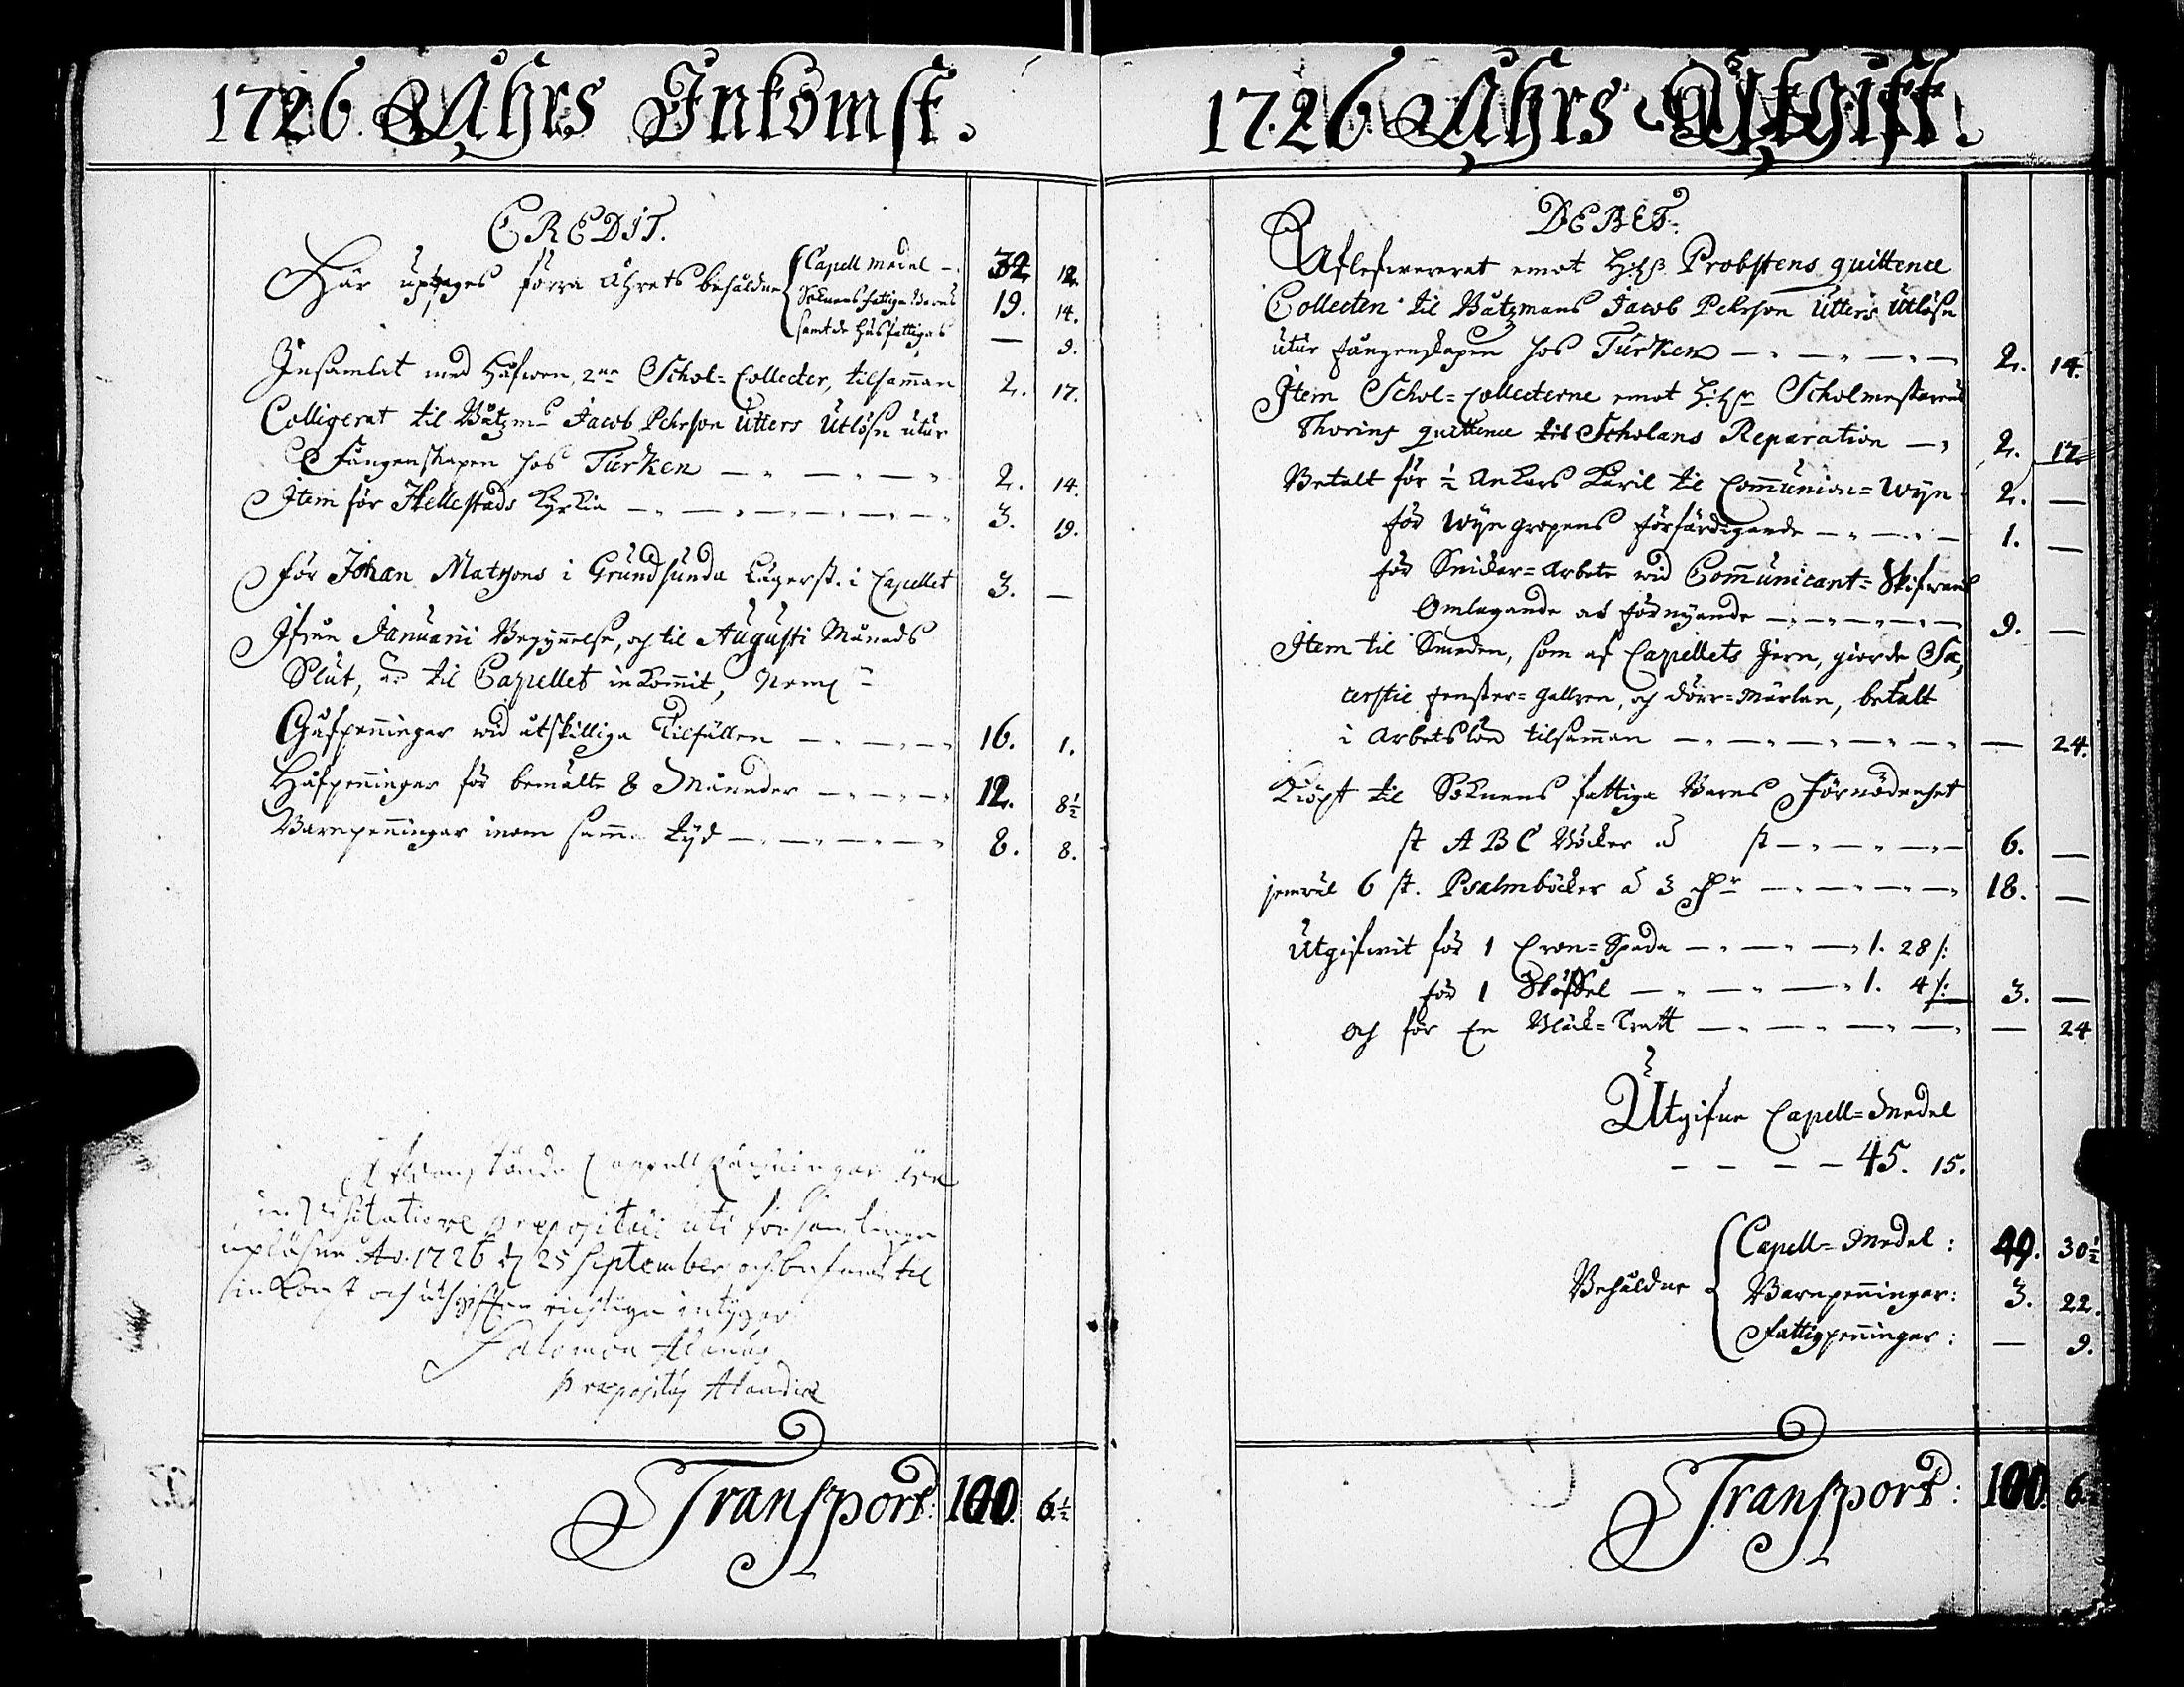 1726 Åhrs Inkomst.
CREDIT.
Här uptages förra Åhrets behåldne Capell Medel — 32. 12.
Soknens fattige Barns 19. 14.
samt de Husfattigas — 9.
Insamlat med Håfwen, 2ne Schol-Collecter, tilsam̄an 2. 17.
Colligerat til Båtzm. Jacob Pehrson Utters Utlösn utur
Fångenskapen hos Turken 2. 14.
Item för Hellestads Kyrkia 3. 19.
för Johan Matsons i Grundsunda Lägerst. i Capellet 3. —
Ifrån Januarii Begyn̄else, och til Augusti Månads
Slut, är til Capellet inkom̄it, Neml.
Gåfpen̄ingar wid åtskillige Tilfällen 16. 1.
Håfpen̄ingar för bemälte 8 Månader 12. 8½
Barnpen̄ingar inom sam̄a tijd 8. 8.
Cappell Räkningar äre
in Visitatione præpositali uti församlingen
upläsne Ao. 1726 d 25 September och befunne til
inkomst och utgifften richtige intyger
Salomon Alanus
præpositus Alandiæ
Transport: 100. 6½
1726 Åhrs Utgift.
DEBET.
Aflefwererat emot Probstens quittence
Collecten til Båtzmans Jacob Pehrson Utters Utlösn
utur fångenskapen hos Turken 2. 14.
Item Schol-Collecterne emot Scholmestarens
Thorings quittence til Scholans Reparation 2. 17.
Betalt för ½ Ankars Käril til Com̄union-Wijn 2. —
för Wijn gropens förfärdigande 1. —
för Snickar-Arbete wid Com̄unicant-Skifwans
Omlagande och förnyande 9. —
Item til Smeden, som af Capellets Jern, giorde Sa,
cerstie fenster-Gallren, och dörr-Märlan, betalt
i Arbetslön tilsamman — 24.
Kiöpt til Soknens fattige Barns Förnödenhet
st ABC Böcker à st 6. —
jemwäl 6 st. Psalmböcker à 3 18. —
Utgifwit för 1 Spada 1. 28 /:
för 1 1. 4 /: 3. —
och för en Bläck-Tratt — 24
Utgifne Capell-Medel
45. 15.
Behåldne Capell-Medel: 49. 30½
Barnpen̄ingar: 3. 22.
Fattigpen̄ingar: — 9.
Transport: 100. 6½